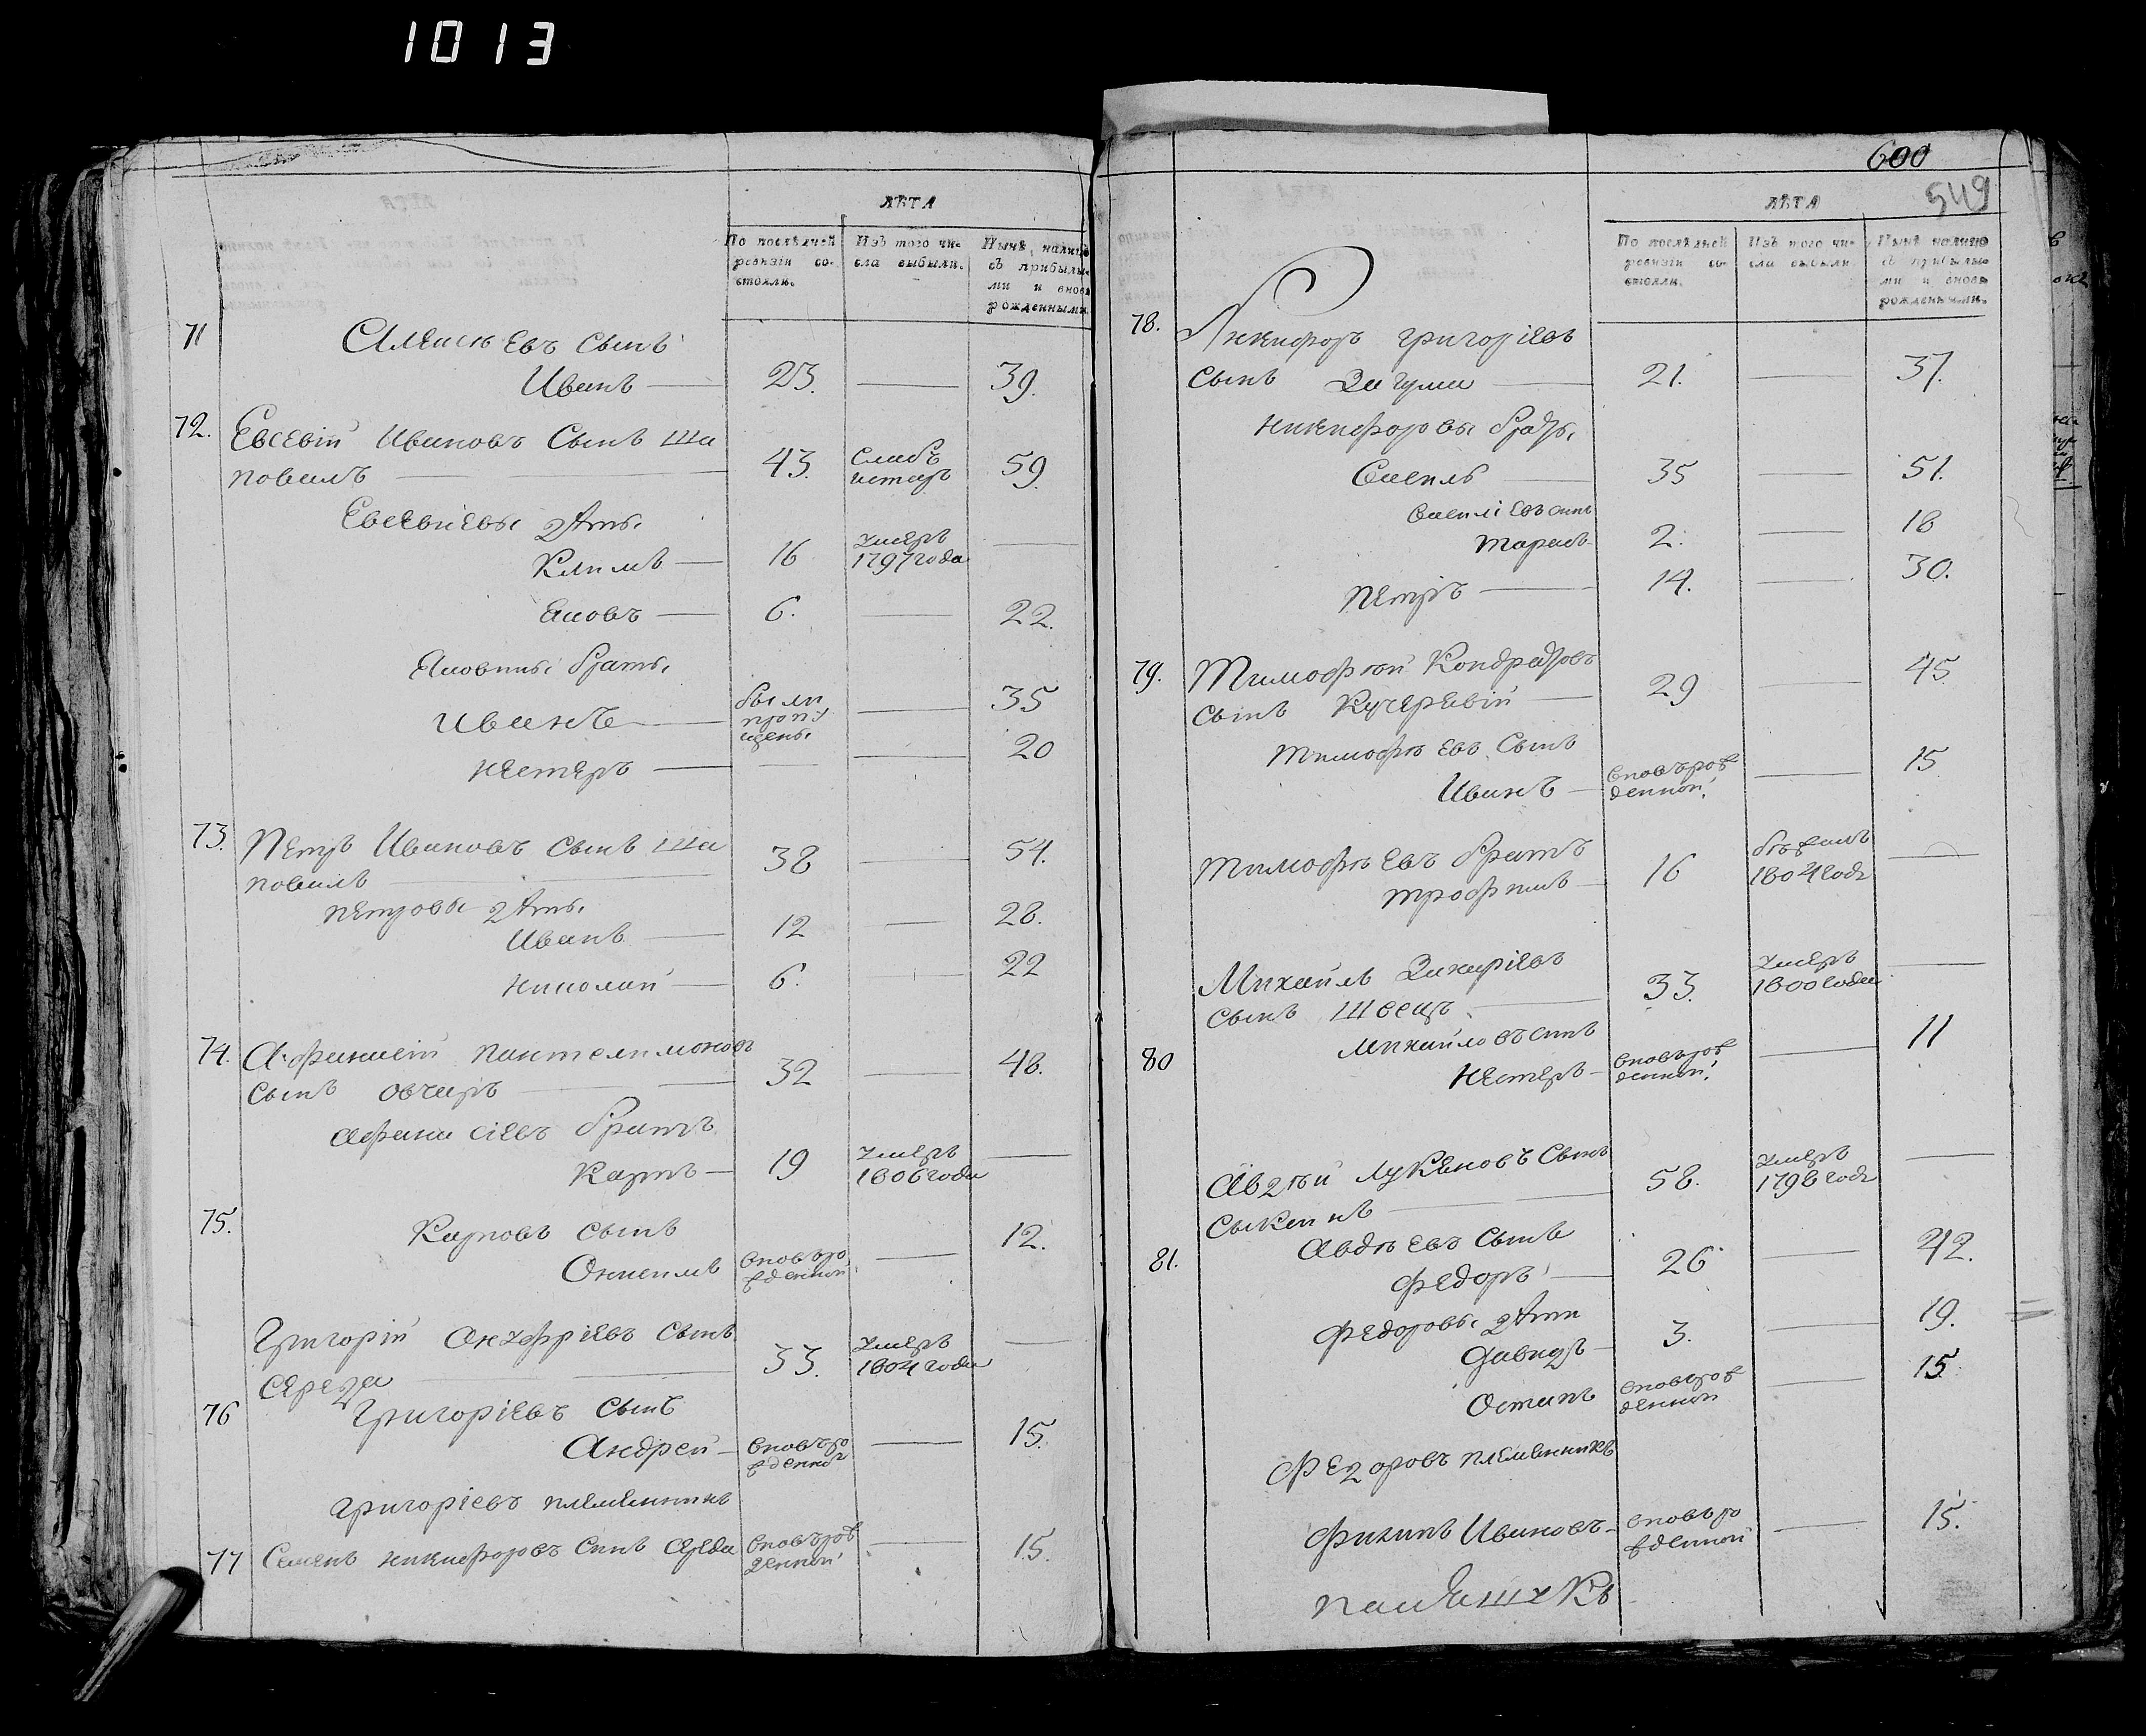 1013
ЛѢТА
По послѣдней ревизіи состояли.
Изъ того числа выбыли.
Нынѣ налицо съ прибылыми и вновь рожденными.
71
Алексѣевъ сынъ
Иванъ 23. 39.
72. Евсевій Ивановъ сынъ Ша
повалъ 43. Слабъ истаръ 59.
Евсевіевы дѣти
Климъ 16 Умеръ 1797 года
Яковъ 6. 22.
Яковлевы браты
Иванъ были пропущены 35
Нестеръ 20
73. Петръ Ивановъ сынъ Ша
повалъ 38 54.
Петровы дѣти
Иванъ 12 28.
Николай 6. 22
74. Афанасій Пантелимоновъ
сынъ Овчаръ 32 48.
Афанасіевъ братъ
Карпъ 19 Умеръ 1806 года
75. Карповъ сынъ
вноворожденной 12.
Григорій Онуфріевъ сынъ
Середа 33. Умеръ 1804 года
76 Григоріевъ сынъ
Андрей вноворожденной 15.
Григоріевъ племянникъ
77 Семенъ Никифоровъ синъ Середа вноворожденной 15.
600
549
ЛѢТА
По послѣдней ревизіи состояли.
Изъ того числа выбыли.
Нынѣ налицо съ прибылыми и вновь рожденными.
78. Никифоръ Григоріевъ
сынъ Загума 21. 37.
Никифоровы браты
Василь 35 51.
Василіевъ синъ
Тарасъ 2. 18
Петръ 14. 30.
79. Тимофѣй Кондратовъ
сынъ Кучеревій 29 45
Тимофѣевъ сынъ
Иванъ вноворожденной 15
Тимофѣевъ братъ
Трофимъ 16 бѣжалъ 1804 года
Михайлъ Захаріевъ
сынъ Швецъ 33. Умеръ 1800 года
80 Михайловъ синъ
Нестеръ вноворожденной 11
Авдѣй Лукяновъ сынъ
58. Умеръ 1798 года
81. Авдѣевъ сынъ
Федоръ 26 42.
Федоровы дѣти
Давидъ 3. 19.
Остапъ вноворожденной 15
Федоровъ племянникъ
Филипъ Ивановъ вноворожденной 15.